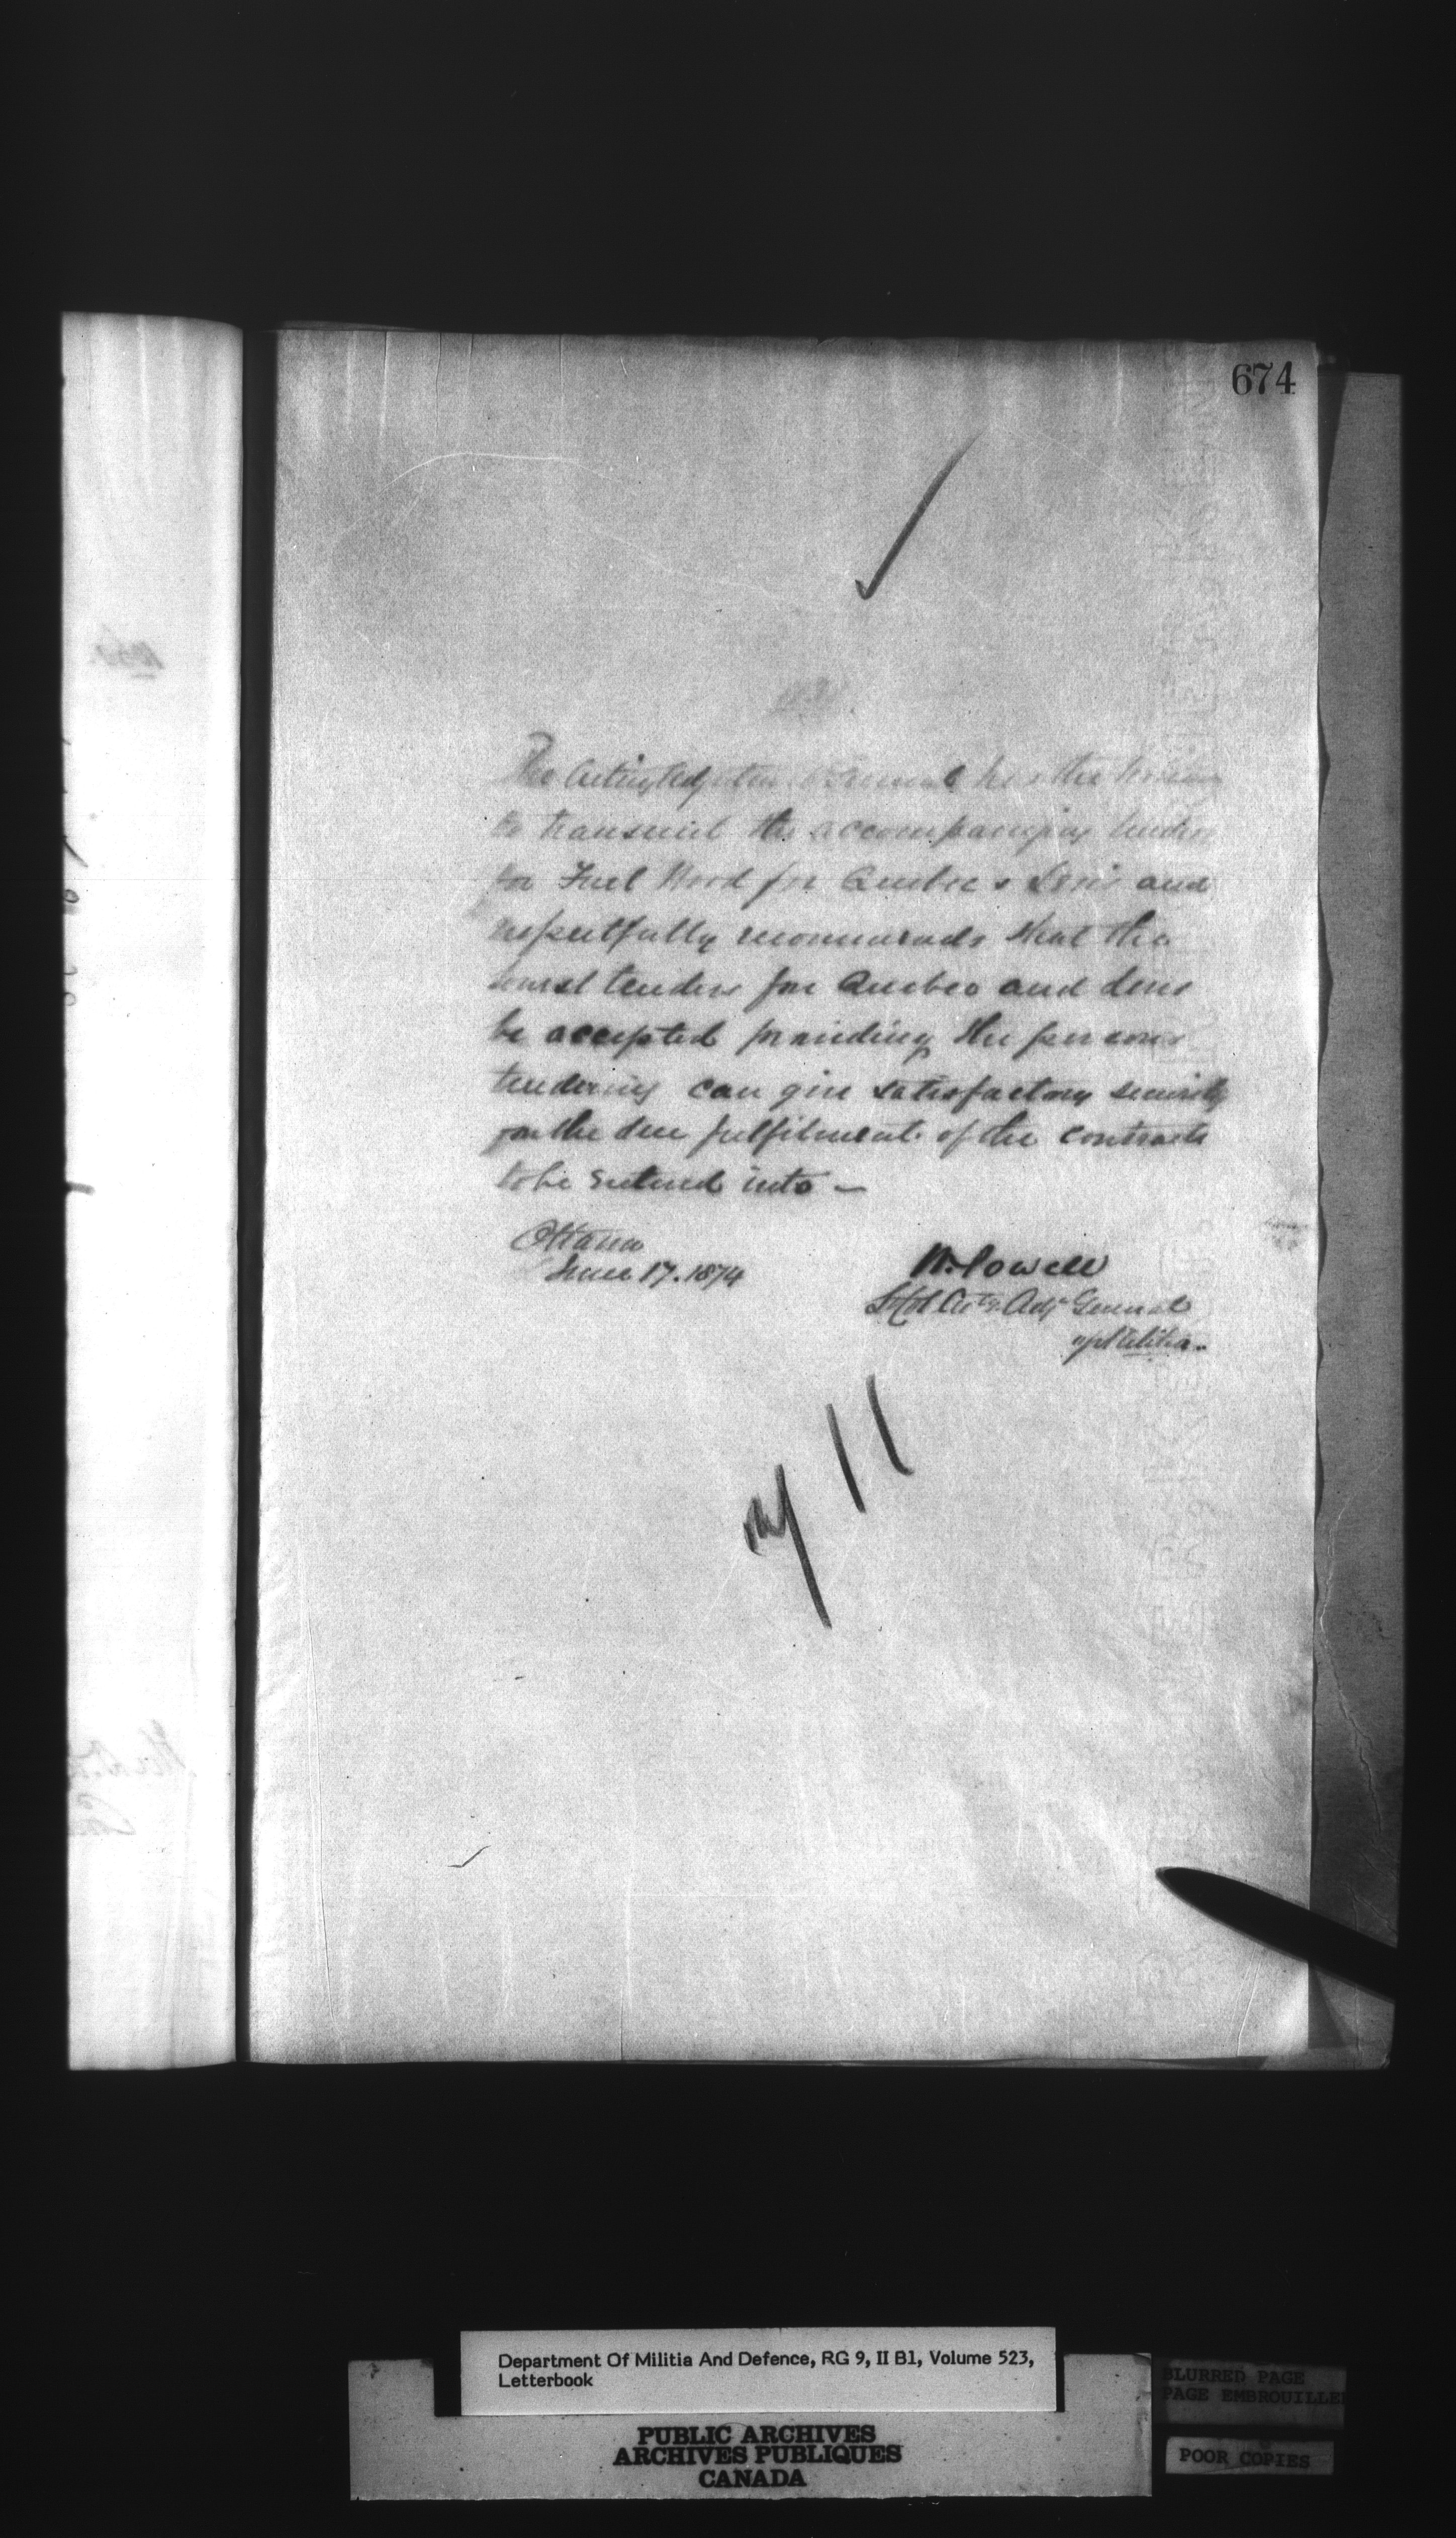 674
The Acting Adjutant General has the honor
to transmit the accompanying tenders
for Fuel Wood for Quebec & Levis and
respectfully recommends that the
lowest tenders for Quebec and Levis
be accepted providing the persons
tendering can give satisfactory security
for the due fulfilment of the contracts
to be entered into —
Ottawa
June 17. 1874
W. Powell
Lt Col Actg Adjt General
of Militia.
Department Of Militia And Defence, RG 9, II B1, Volume 523,
Letterbook
PUBLIC ARCHIVES
ARCHIVES PUBLIQUES
CANADA
BLURRED PAGE
PAGE EMBROUILLEE
POOR COPIES